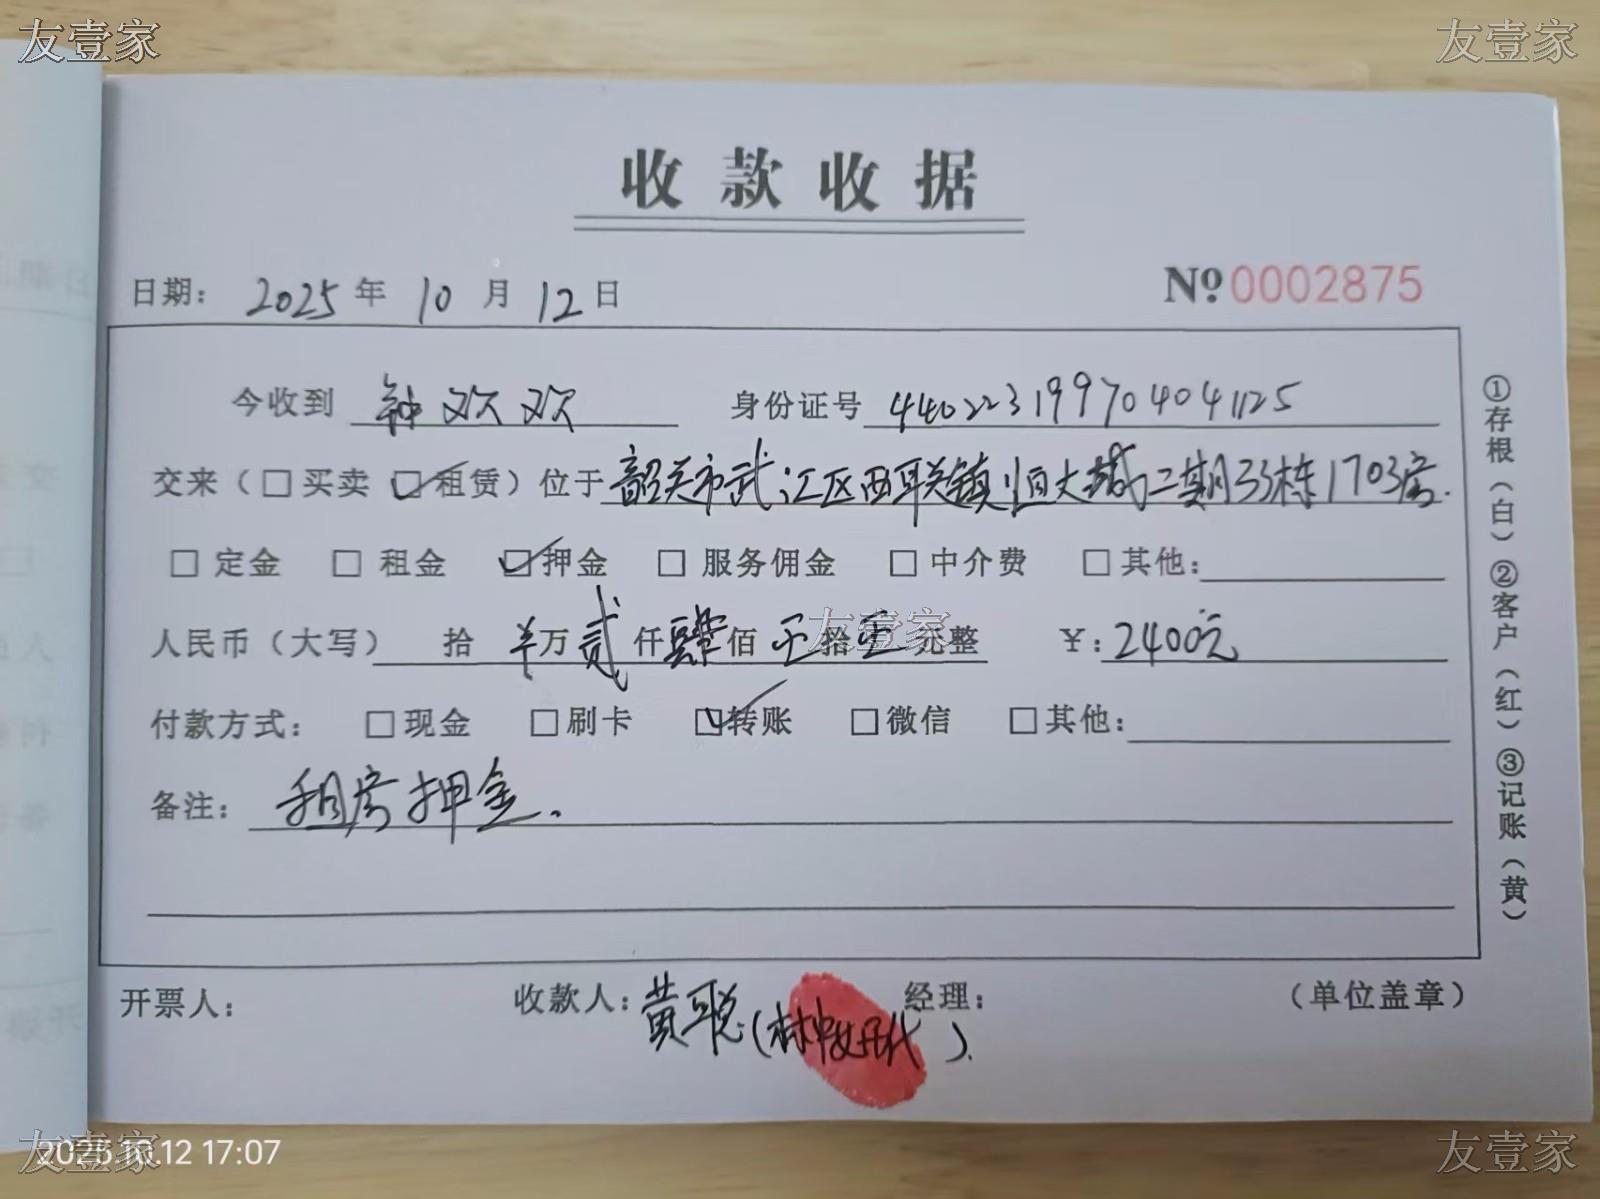 友壹家 友壹家
收款收据
日期： 2025 年 10 月 12 日 №0002875
今收到 钟欢欢 身份证号 440223199704041125
交来（□买卖 ☑租赁）位于 韶关市武江区西联镇恒大城二期33栋1703房.
□ 定金 □ 租金 ☑押金 □ 服务佣金 □ 中介费 □ 其他：
人民币（大写） 拾 万 贰 仟 肆 佰 拾 元整 ¥：2400元
付款方式： □现金 □刷卡 ☑转账 □微信 □其他：
备注： 租房押金.
开票人： 收款人：黄聪（代）. 经理： （单位盖章）
①存根（白）②客户（红）③记账（黄）
友壹家
友壹家 2025.10.12 17:07 友壹家